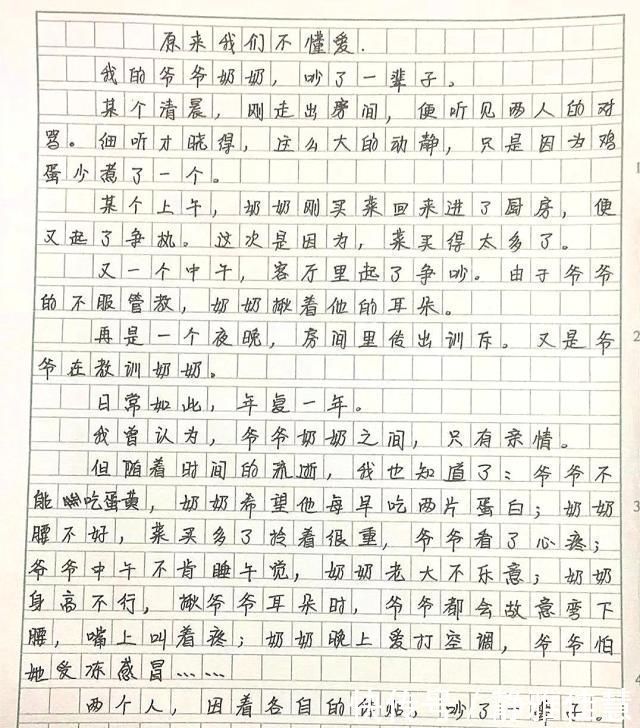 原来我们不懂爱.
我的爷爷奶奶，吵了一辈子。
某个清晨，刚走出房间，便听见两人的对
骂。细听才晓得，这么大的动静，只是因为鸡
蛋少煮了一个。
某个上午，奶奶刚买菜回来进了厨房，便
又起了争执。这次是因为，菜买得太多了。
又一个中午，客厅里起了争吵。由于爷爷
的不服管教，奶奶揪着他的耳朵。
再是一个夜晚，房间里传出训斥。又是爷
爷在教训奶奶。
日常如此，年复一年。
我曾认为，爷爷奶奶之间，只有亲情。
但随着时间的流逝，我也知道了：爷爷不
能吃蛋黄，奶奶希望他每早吃两片蛋白；奶奶
腰不好，菜买多了拎着很重，爷爷看了心疼；
爷爷中午不肯睡午觉，奶奶老大不乐意；奶奶
身高不行，揪爷爷耳朵时，爷爷都会故意弯下
腰，嘴上叫着疼；奶奶晚上爱打空调，爷爷怕
她受冻感冒……
两个人，因着各自的 吵了一辈子
1
2
3
4